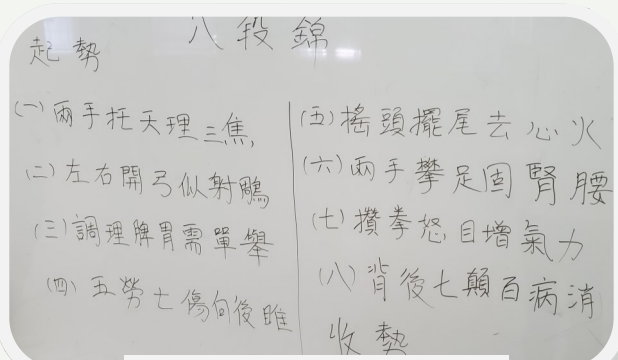 八段錦
起勢
(一)兩手托天理三焦,
(二)左右開弓似射鵰
(三)調理脾胃需單舉
(四)五勞七傷向後雎
(五)搖頭擺尾去心火
(六)兩手攀足固腎腰
(七)攢拳怒目增氣力
(八)背後七顛百病消
收勢